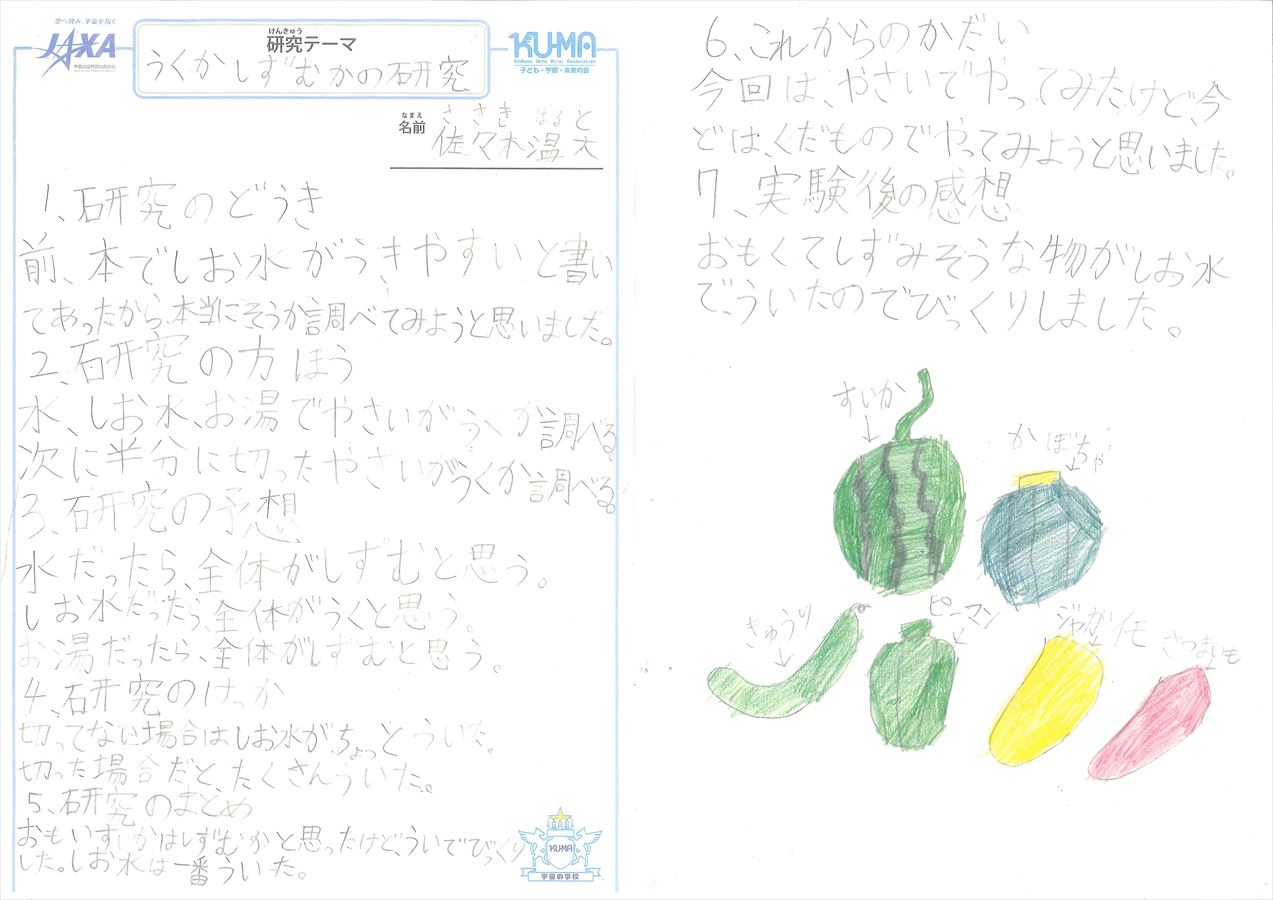 空へ挑み、宇宙を拓く
JAXA
けんきゅう
研究テーマ
うくかしずむかの研究
KU-MA
Kodomo Uchu Mirai Association
子ども・宇宙・未来の会
なまえ
名前
ささき はると
佐々木温大
1、研究のどうき
前、本でしお水がうきやすいと書い
てあったから、本当にそうか調べてみようと思いました。
2、研究の方ほう
水、しお水、お湯でやさいがうくか調べる。
次に半分に切ったやさいがうくか調べる。
3、研究の予想
水だったら、全体がしずむと思う。
しお水だったら、全体がうくと思う。
お湯だったら、全体がしずむと思う。
4、研究のけっか
切ってない場合はしお水が、ちょっとういた。
切った場合だと、たくさんういた。
5、研究のまとめ
おもいすいかはしずむかと思ったけど、ういてびっくり
した。しお水は一番ういた。
KU-MA
宇宙の学校
6、これからのかだい
今回は、やさいでやってみたけど、今
どは、くだものでやってみようと思いました。
7、実験後の感想
おもくてしずみそうな物がしお水
で、ういたのでびっくりしました。
すいか
かぼちゃ
きゅうり
ピーマン
ジャガイモ
さつまいも